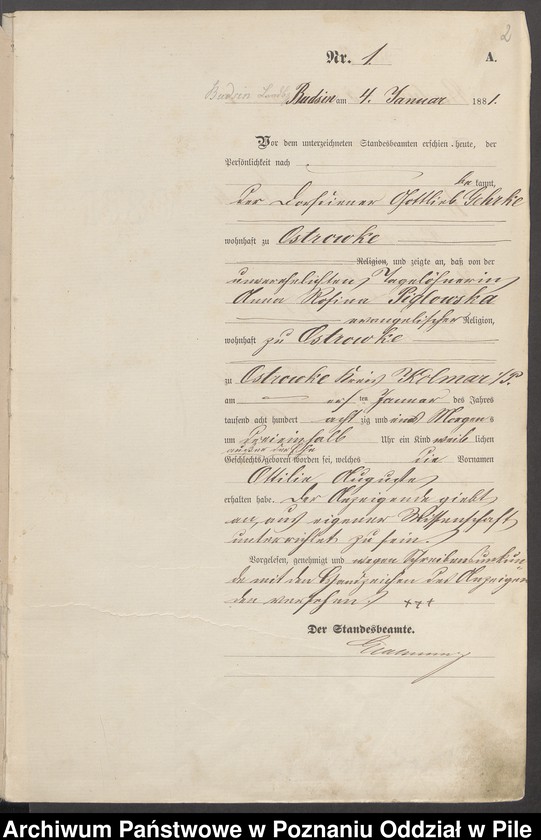 2
Nr. 1. A.
Budsin Landbz. Budsin am 4. Januar 1881.
Vor dem unterzeichneten Standesbeamten erschien heute, der
Persönlichkeit nach
be kannt,
der Dorfdiener Gottlieb Gehrke
wohnhaft zu Ostrowke
Religion, und zeigte an, daß von der
unverehelichten Tagelöhnerin
Anna Rosina
evangelischer Religion,
wohnhaft zu Ostrowke
zu Ostrowke Kreis Kolmar i/P.
am ersten Januar des Jahres
tausend acht hundert achtzig und eins Morgens
um dreieinhalb Uhr ein Kind weiblichen
Geschlechts geboren worden sei, welches die Vornamen
Ottilie Auguste
erhalten habe. Der Anzeigende giebt
an, aus eigener Wissenschaft
unterrichtet zu sein.
Vorgelesen, genehmigt und wegen Schreibensunkun-
de mit den Handzeichen des Anzeigen
den versehen. +++
Der Standesbeamte.
Archiwum Państwowe w Poznaniu Oddział w Pile